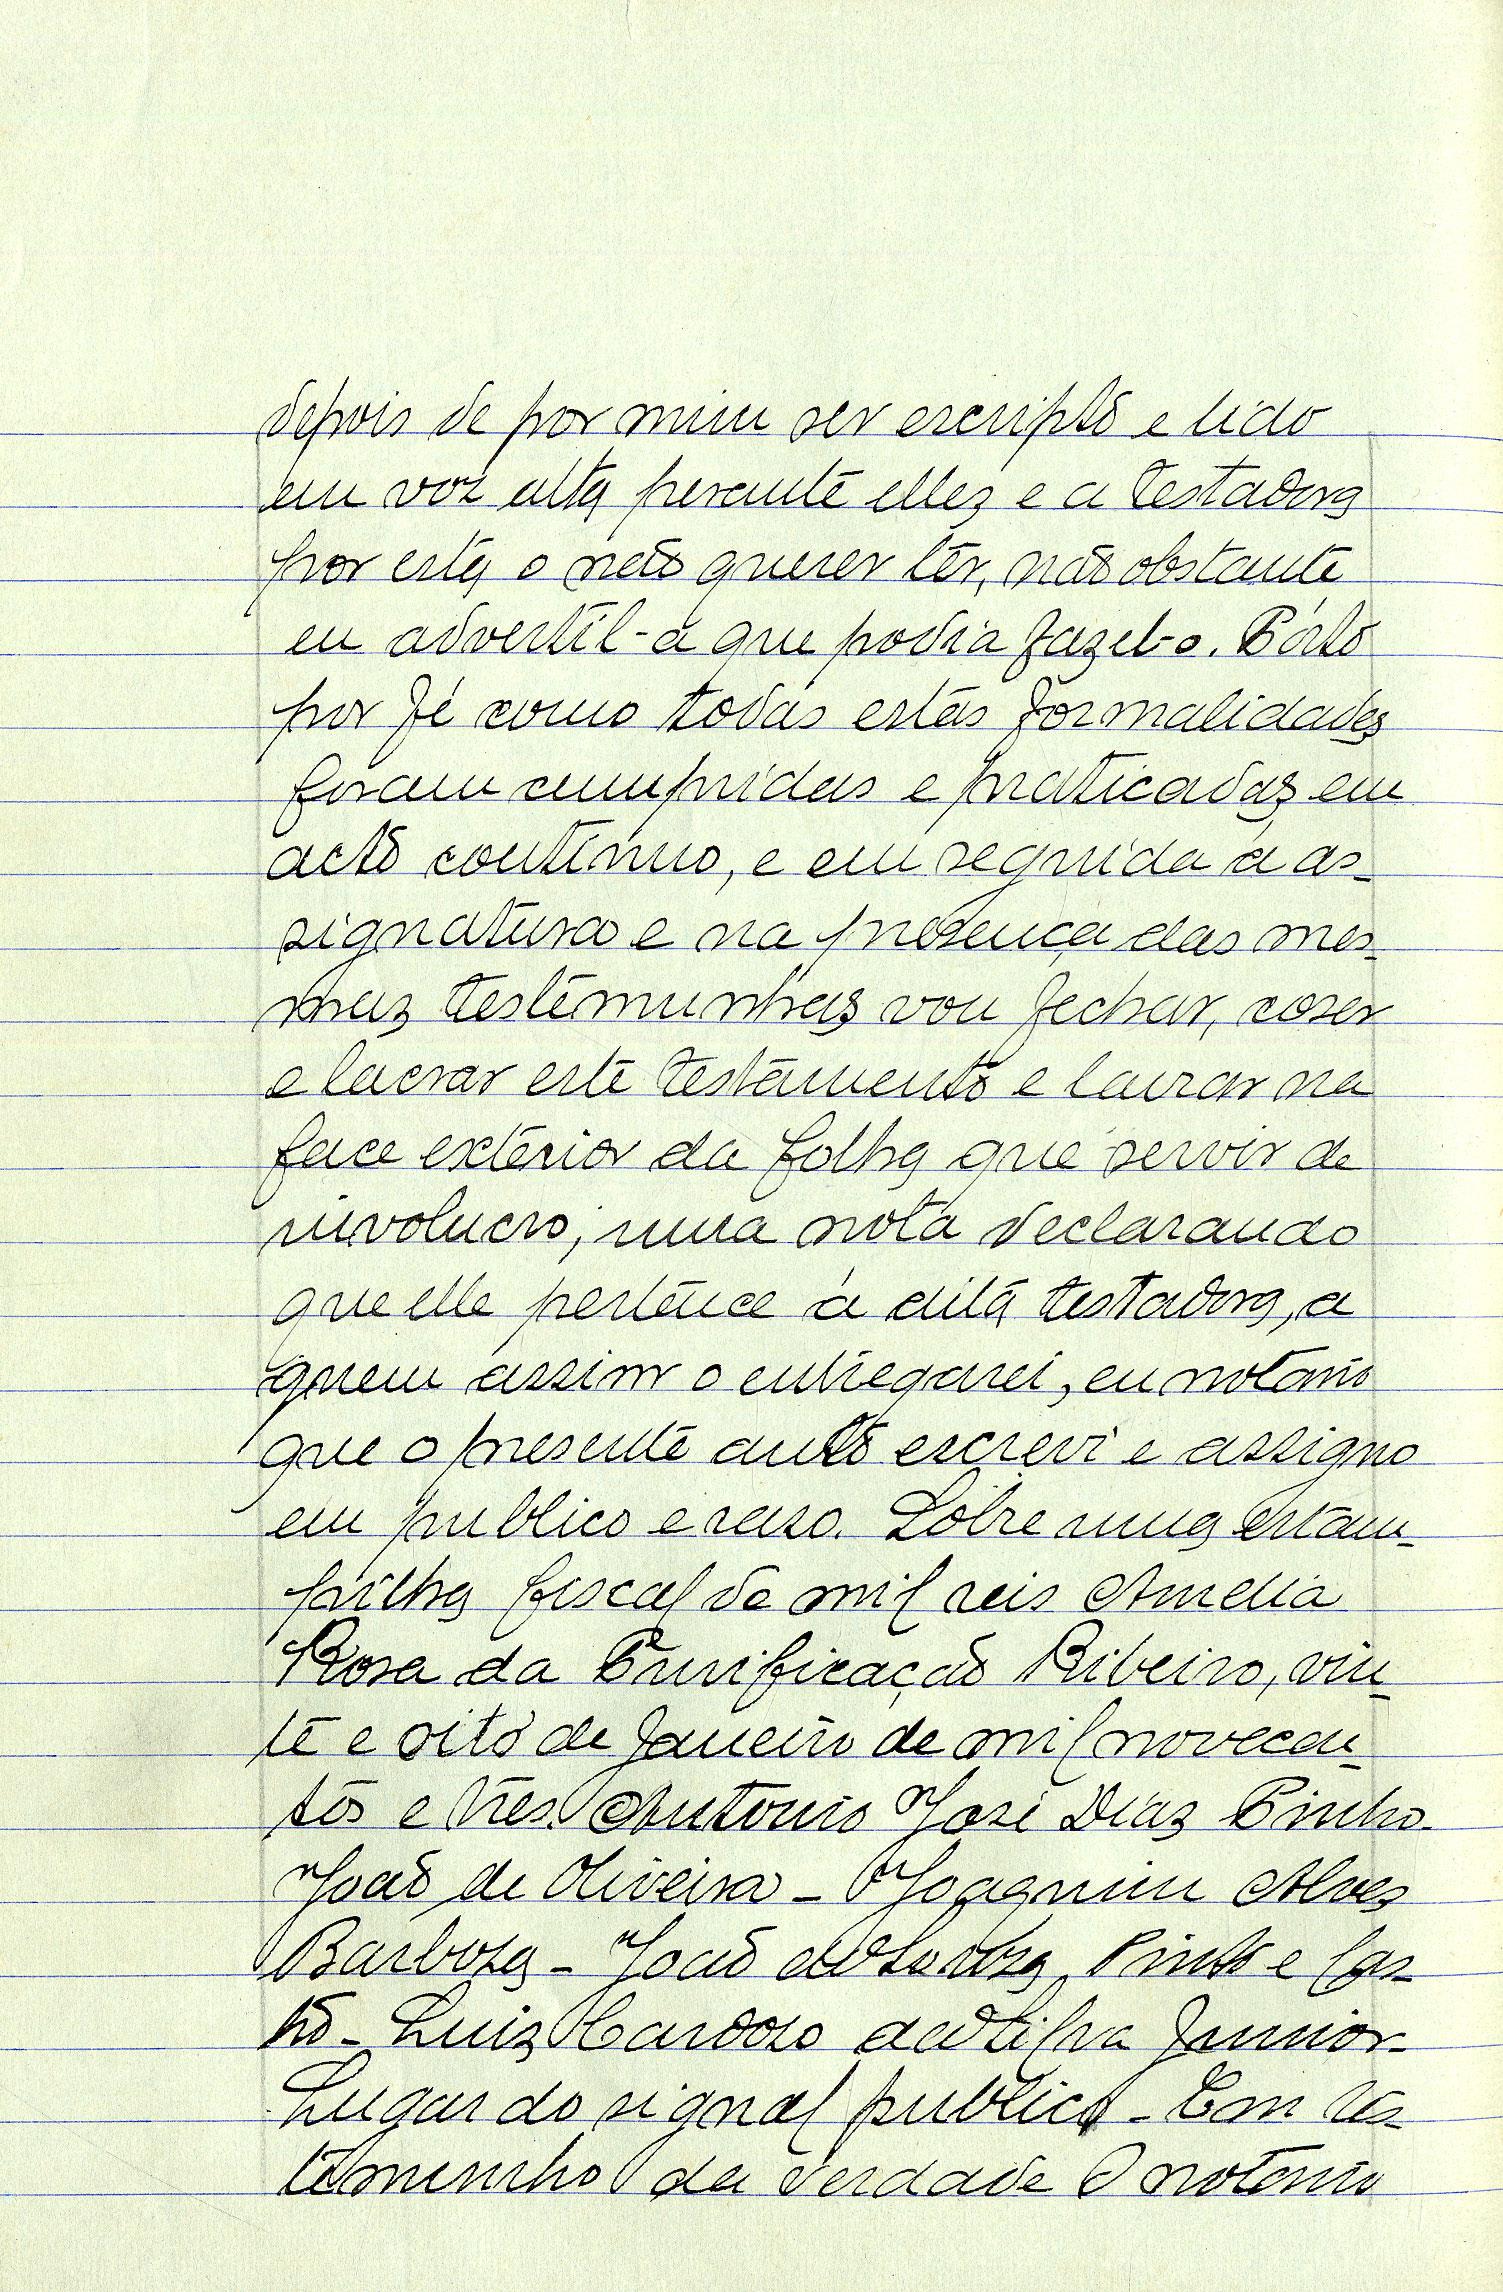 depois de por mim ser escripto e lido
em voz alta perante elles e a testadora
por esta o não querer lêr, não obstante
eu advertil-a que podia fazel-o. Pórto
por fé como todas estas formalidades
foram cumpridas e praticadas em
acto continuo, e em seguida á as-
signatura e na presença das mes-
mas testemunhas vou fechar, coser
e lacrar este testamento e lavrar na
face exterior da folha que servir de
involucro, uma nota declarando
que elle pertence á dita testadora, a
quem assim o entregarei, eu notario
que o presente auto escrevi e assigno
em publico e raso. Sobre uma estam-
pilha fiscal de mil reis Amelia
Rosa da Purificação Ribeiro, vin-
te e oito de Janeiro de mil novecen-
tos e tres. Antonio José Dias Pinho-
João de Oliveira - Joaquim Alves
Barbosa - João de Souza Pinto e Cas-
tro - Luiz Cardoso da Silva Junior-
Lugar do signal publico - Em tes-
temunho da verdade O notario